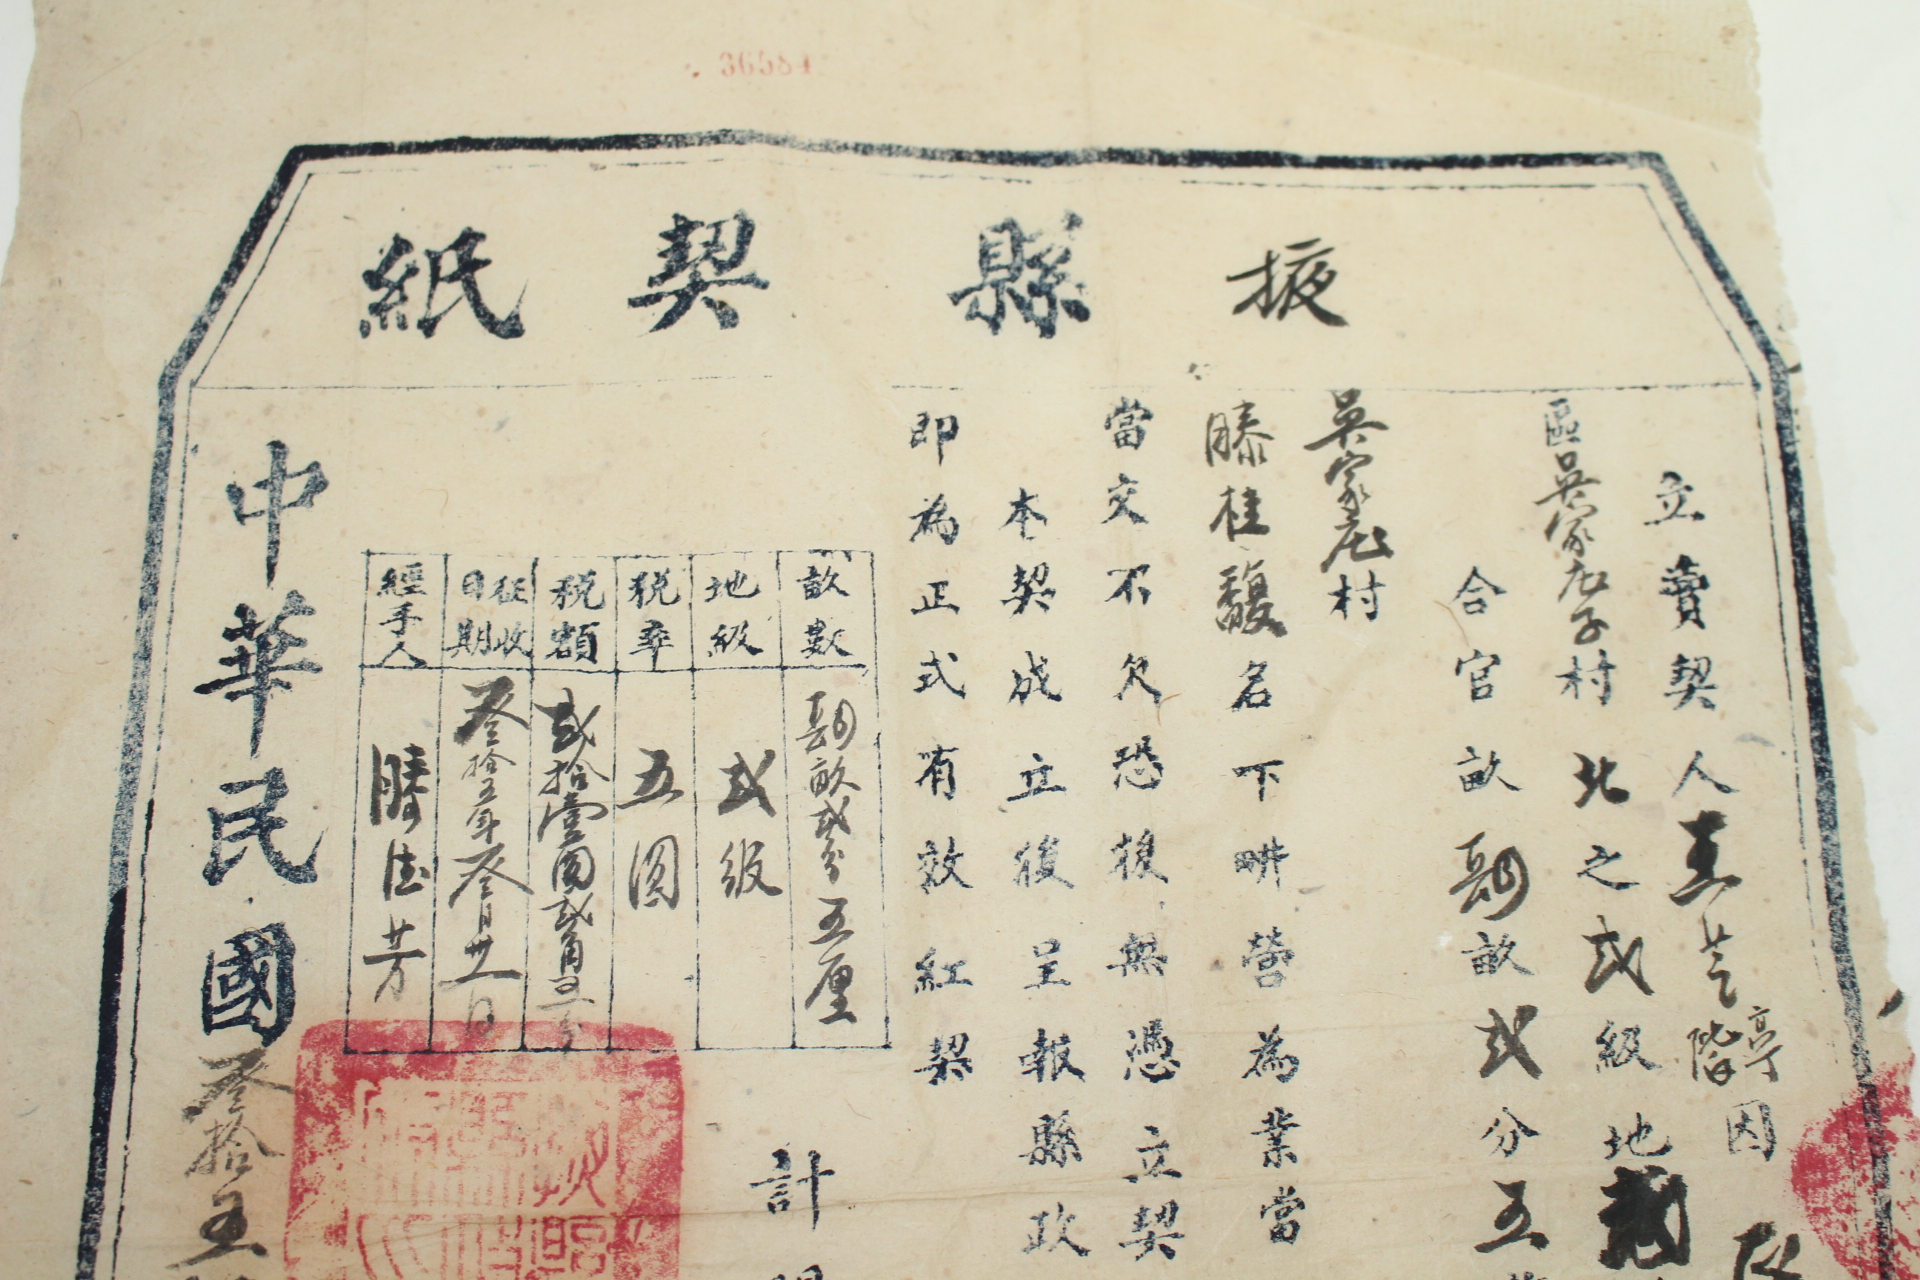 36584
掖縣契紙
立賣契人 芝亭階因
區吳家庄子村北之弍級地
合官畝畝弍分五
吳家庄村
滕桂馥名下畊營為業當
當交不欠恐後無憑立契
本契成立後呈報縣政
即為正式有效紅契
畝數 畝弍分五厘
地級 弍級
稅率 五圓
稅額 弍拾壹圓弍角五分
征收日期 叁拾五年叁月廿日
經手人 滕德芳
計開
中華民國叁拾五